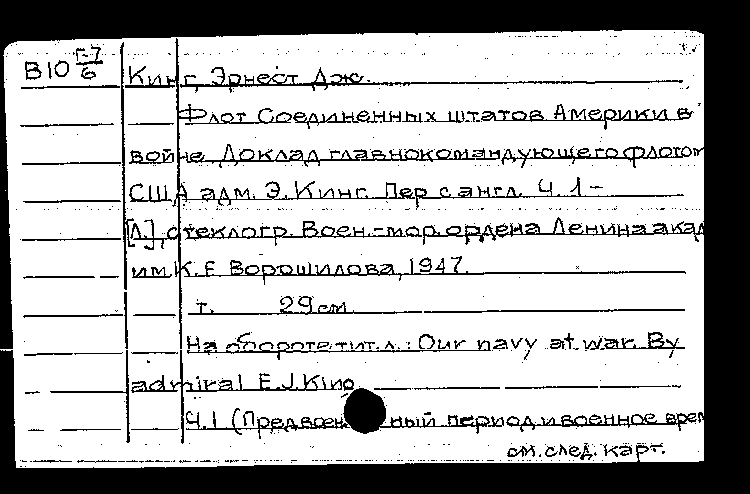 В10 Г-7/6 Кинг, Эрнест Дж.
Флот Соединенных штатов Америки в
войне. Доклад главнокомандующего флотом
США адм. Э. Кинг. Пер с англ. Ч. 1 –
[Л.], стеклогр. Воен.-мор. ордена Ленина акад
им. К. Е Ворошилова, 1947.
т. 29 см
На обороте тит. л. : Our navy at war. By
admiral E.J. King
Ч. 1 (Предвоен ный период и военное врем
см. след. карт.